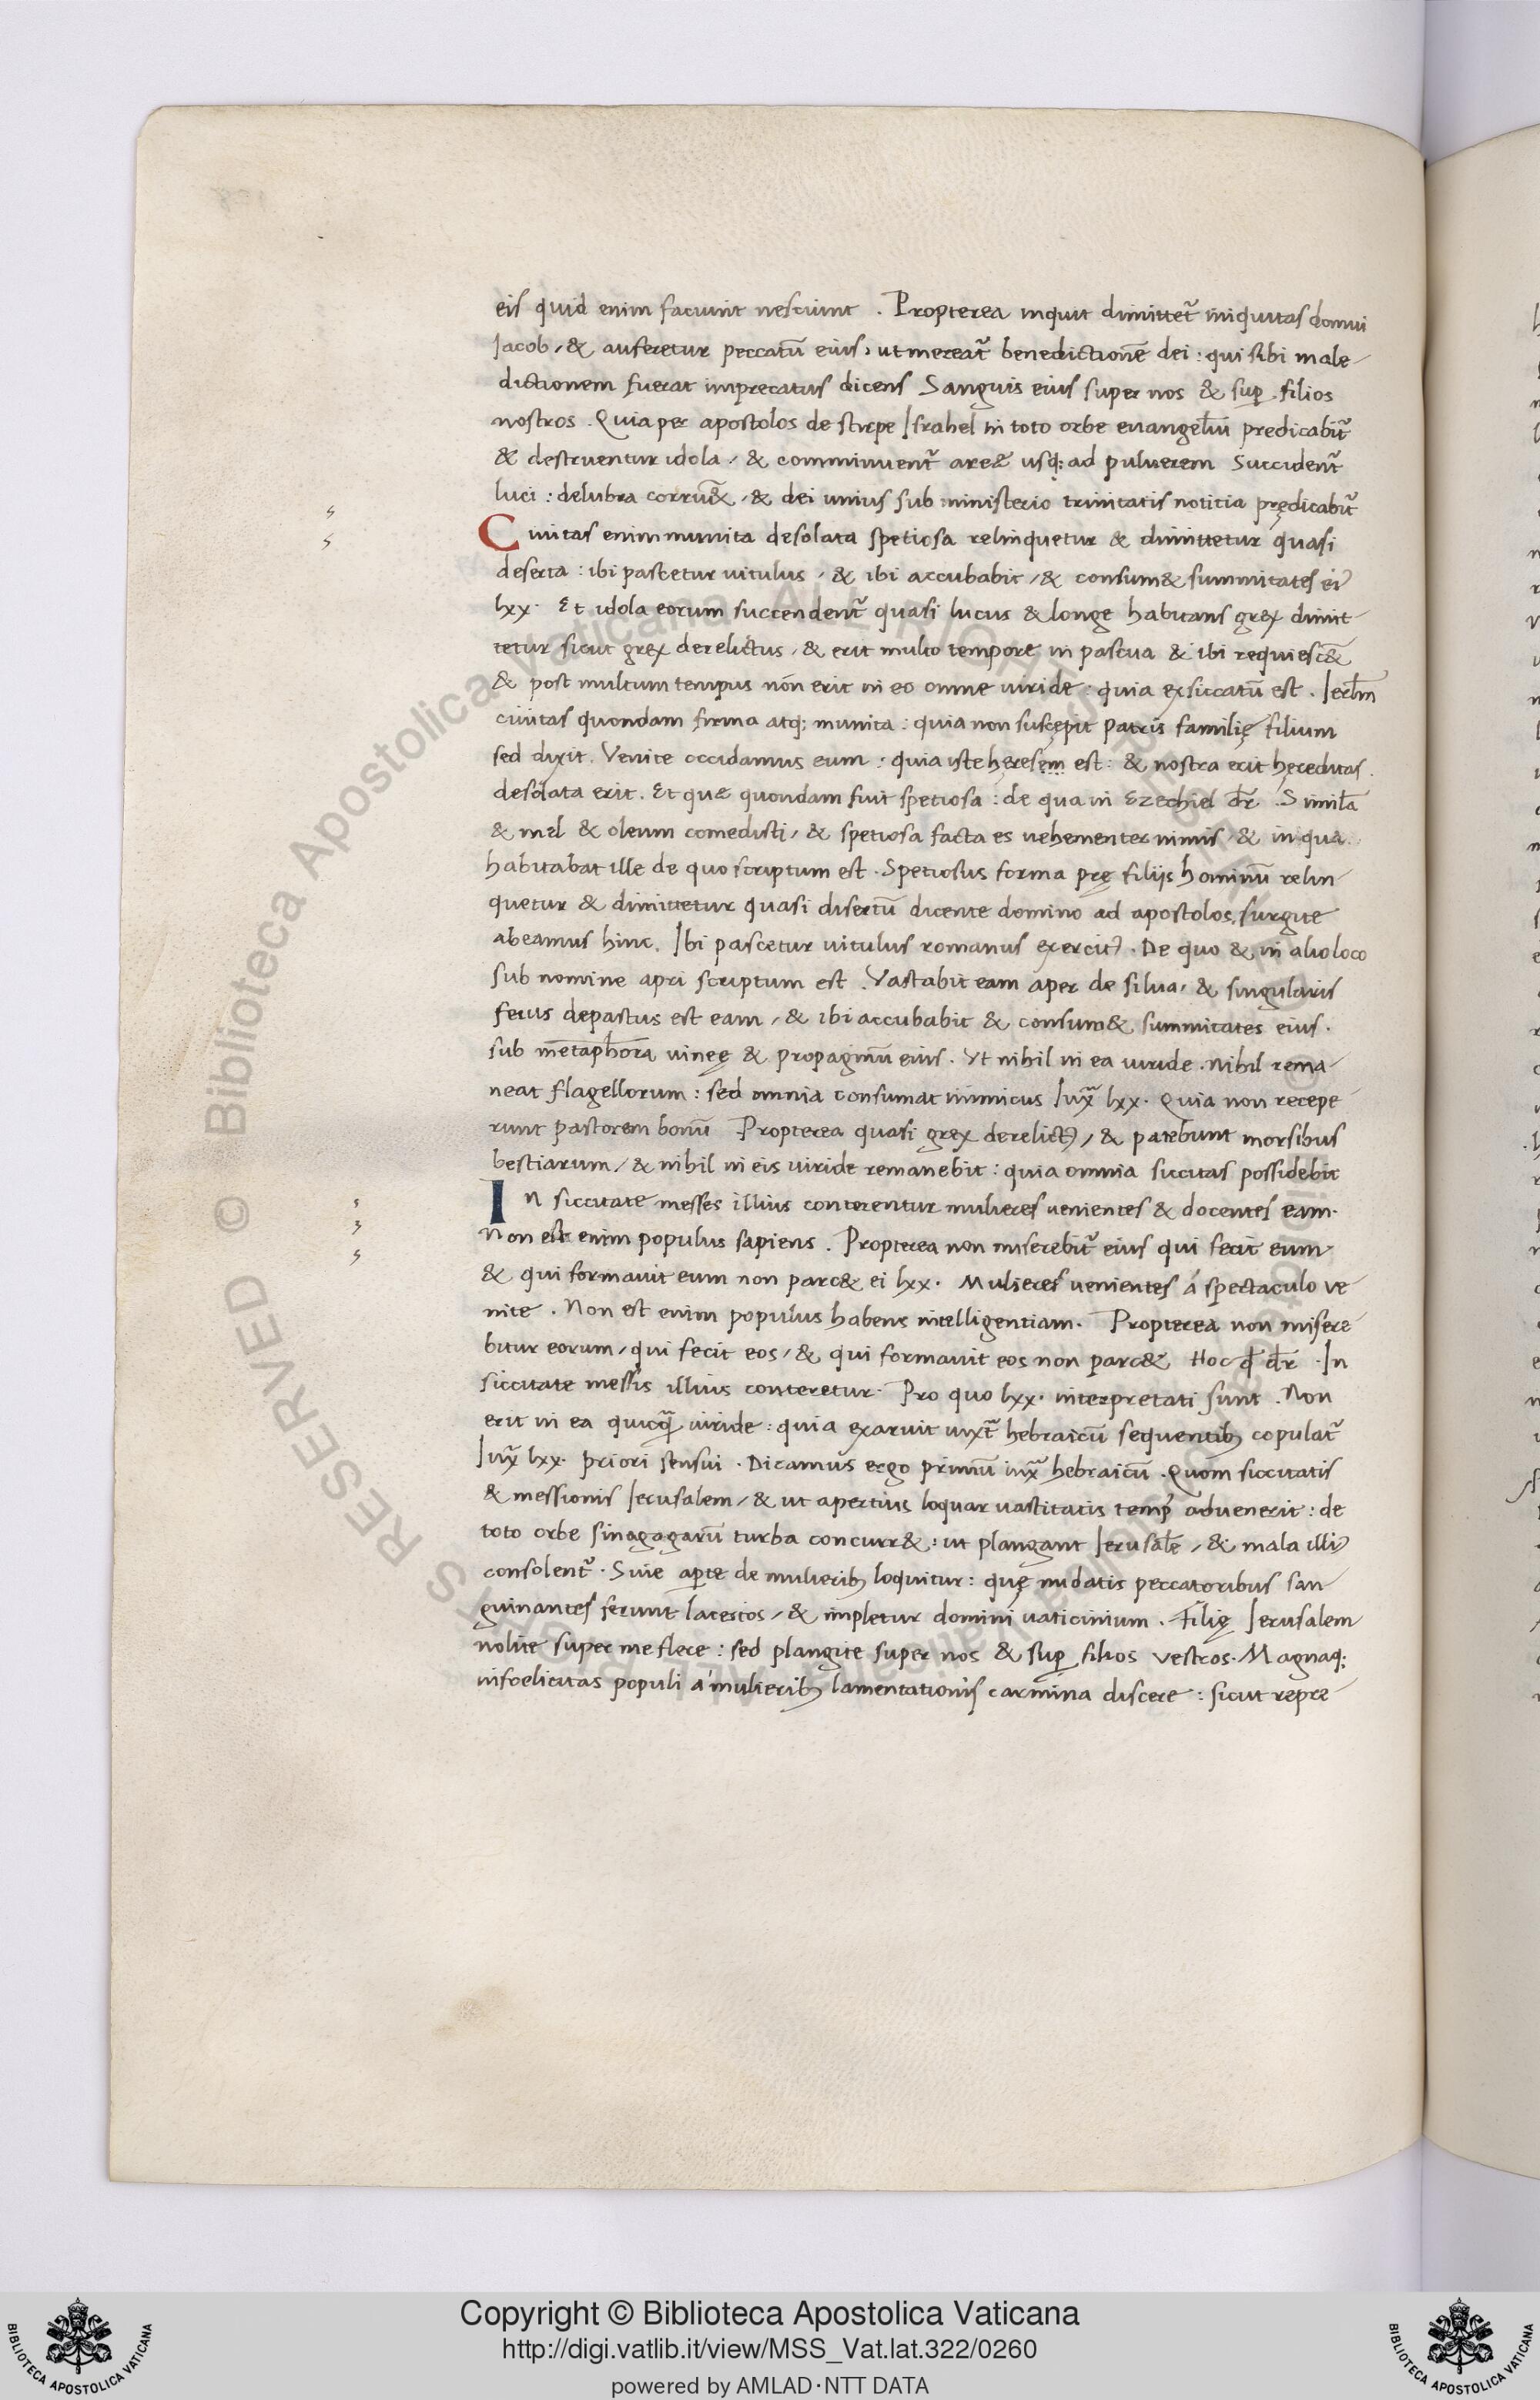 eis quid enim faciunt nesciunt . Propterea inquit dimittet᷑ iniquitas domui
Jacob / & auferetur peccatū eius, ut mereat᷑ benedictionē dei : qui sibi male
dictionem fuerat imprecatus dicens Sanguis eius super nos & sup̱ . filios
nostros . Quia per apostolos de stirpe Israhel in toto orbe euangeliū predicabit᷑
& destruentur idola / & comminuent᷑ are& usq; ad puluerem Succident᷑
luci : delubra corrū& / & dei unius sub ministerio trinitatis notitia prędicabit᷑
Ciuitas enim munita desolata spetiosa relinquetur & dimittetur quasi
deserta : ibi pascetur uitulus / & ibi accubabit / & consum& summitates eiꝰ
lxx . Et idola eorum succendent᷑ quasi lucus & longe habitans grex dimit
tetur sicut grex derelictus / & erit multo tempore in pascua & ibi requiesc&
& post multum tempus nōn erit in eo omne uiride : quia exsiccatū est . Ierlm̄
ciuitas quondam firma atq; munita : quia non suscępit patris familię filium
sed dixit . Venite occidamus eum : quia iste hęresem est : & nostra erit hęreditas .
desolata erit . Et quæ quondam fuit spetiosa : de qua in Ezechiel dr̄ . Simila
& mel & oleum comedisti / & spetiosa facta es uehementer nimis / & in qua
habitabat ille de quo scriptum est . Spetiosus forma prę filijs hominū relin
quetur & dimittetur quasi disertū dicente domino ad apostolos, surgite
abeamus hinc . Ibi pascetur uitulus romanus exercitꝰ . De quo & in alio loco
sub nomine apri scriptum est . Vastabit eam aper de silua, & singularis
ferus depastus est eam / & ibi accubabit & consum& summitates eius .
sub metaphora uineę & propaginū eius . Vt nihil in ea uiride . nihil rema
neat flagellorum : sed omnia consumat inimicus Iux̄ lxx . Quia non recepe
runt pastorem bonū Propterea quasi grex derelictꝰ / & patebunt morsibus
bestiarum / & nihil in eis uiride remanebit : quia omnia siccitas possidebit
In siccitate messes illius conterentur mulieres uenientes & docentes eam .
Non est enim populus sapiens . Propterea non miserebit᷑ eius qui fecit eum
& qui formauit eum non parc& ei lxx . Mulieres uenientes á spectaculo ve
nite . Non est enim populus habens intelligentiam . Propterea non misere
bitur eorum / qui fecit eos / & qui formauit eos non parc& Hoc qđ dr̄ . In
siccitate messis illius conteretur . Pro quo lxx . interpretati sunt . Non
erit in ea quicq̄ uiride : quia exaruit iuxt̄ hebraicū sequentibꝫ copulat᷑
Iux̄ lxx . priori sensui . Dicamus ergo primū iux̄ hebraicū . Quom siccitatis
& messionis Jerusalem / & ut apertius loquar uastitatis tempꝰ aduenerit : de
toto orbe sinagagarū turba concurr& : ut plangant Ierusalē / & mala illiꝰ
consolent᷑ . Siue aperte de mulieribꝫ loquitur : quę nudatis peccatoribus san
guinantes ferunt lacertos / & impletur domini uaticinium . Filię Ierusalem
nolite super me flere : sed plangite super nos & sup̱ filios vestros . Magnaq;
infoelicitas populi á mulieribꝫ lamentationis carmina discere : sicut repre
Copyright © Biblioteca Apostolica Vaticana
http://digi.vatlib.it/view/MSS_Vat.lat.322/0260
powered by AMLAD·NTT DATA